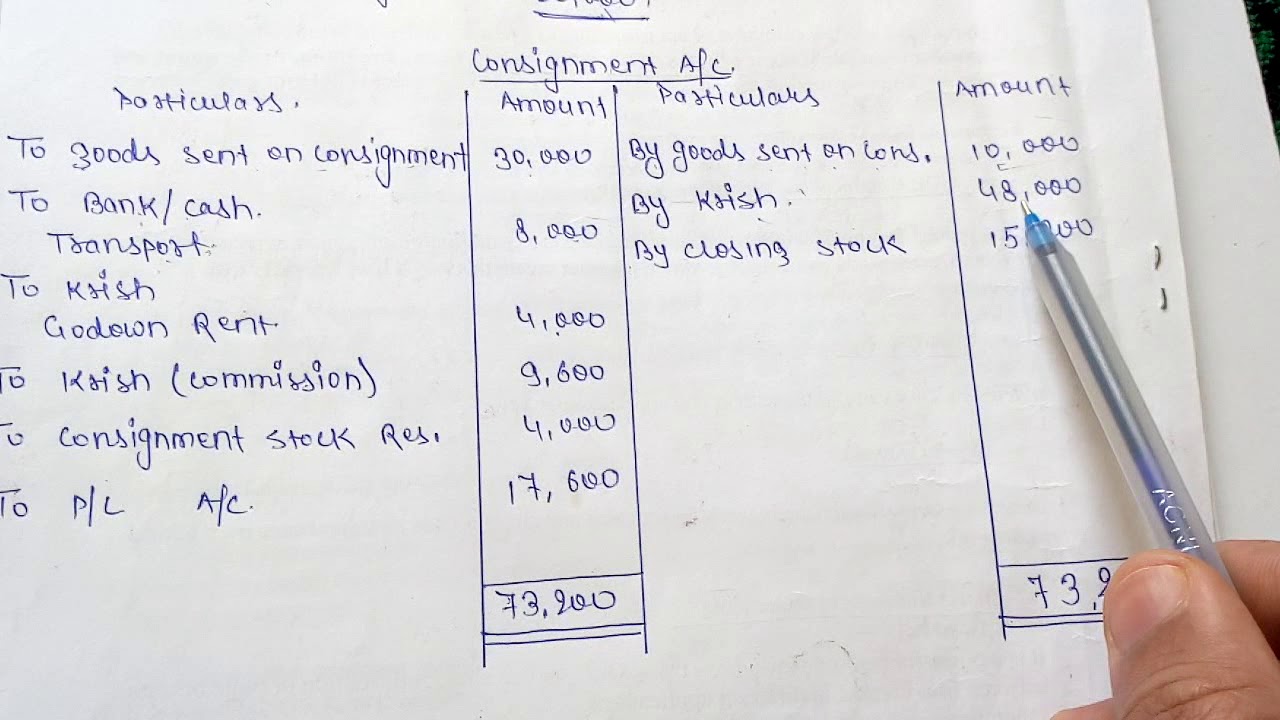 Consignment A/C.
Particulars. Amount Particulars Amount
To goods sent on consignment 30,000 By goods sent on cons. 10,000
To Bank/cash. By Krish. 48,000
Transport. 8,000 By closing stock
To Krish
Godown Rent. 4,000
To Krish (commission) 9,600
To consignment stock Res. 4,000
To P/L A/C. 17,600
73,200